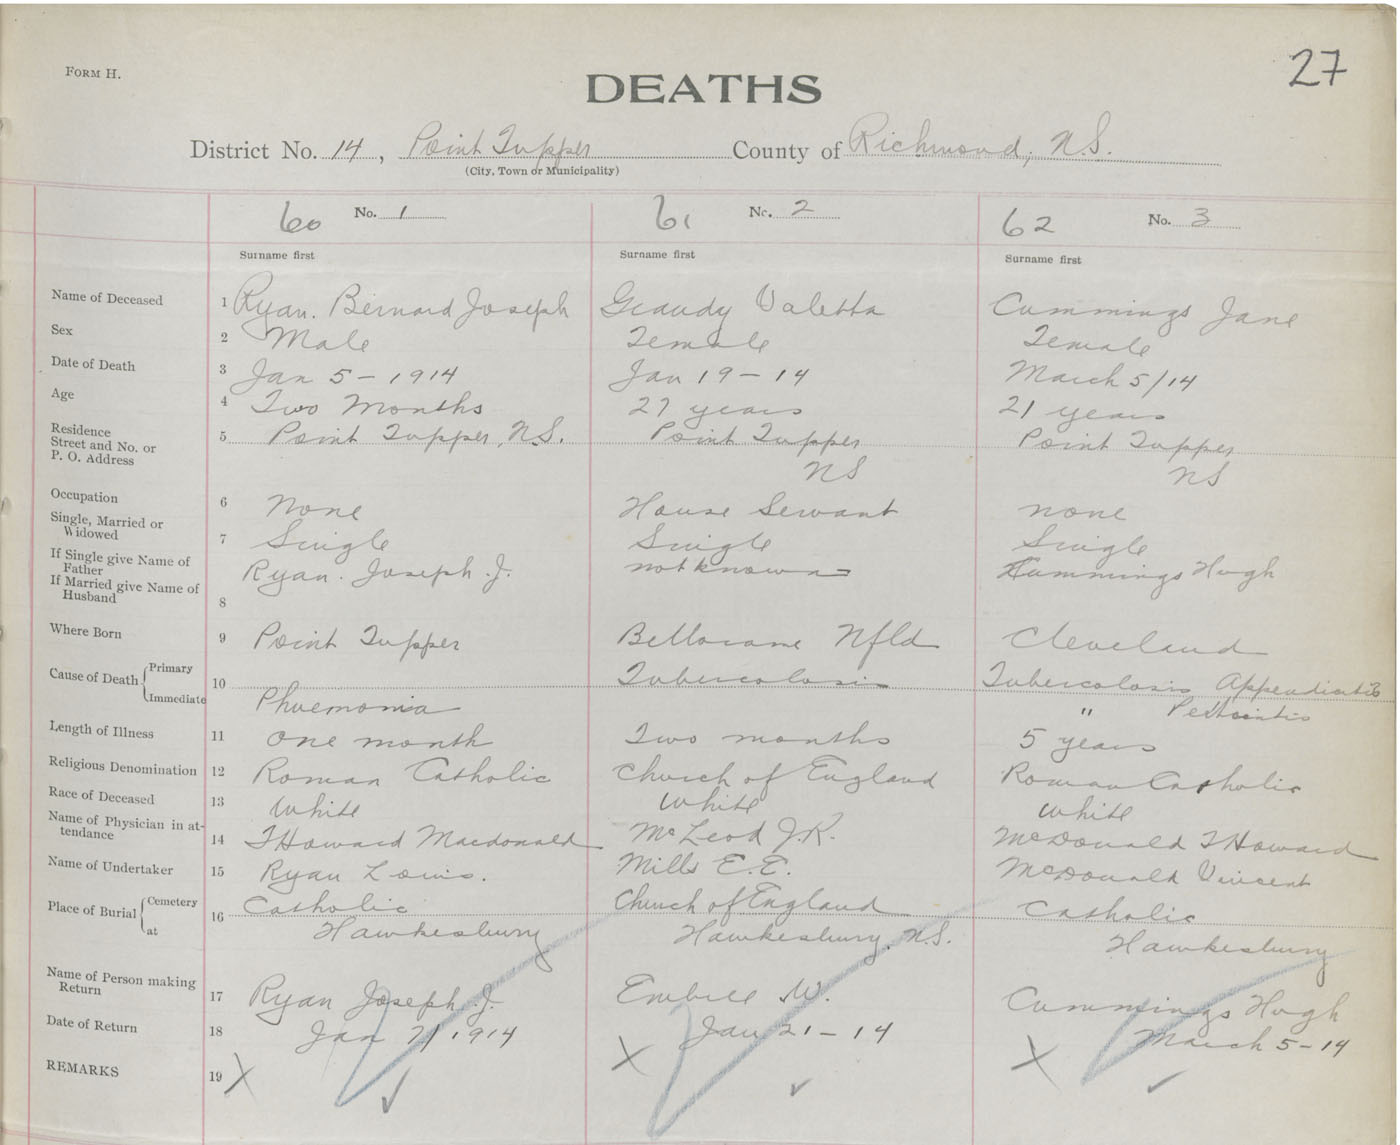 FORM H.
27
DEATHS
District No. 14, Point Tupper County of Richmond, N.S.
(City, Town or Municipality)
60 No. 1 61 No. 2 62 No. 3
Surname first Surname first Surname first
Name of Deceased 1 Ryan. Bernard Joseph Graudy Valetta Cummings Jane
Sex 2 Male Female Female
Date of Death 3 Jan 5 - 1914 Jan 19 - 14 March 5/14
Age 4 Two Months 27 years 21 years
Residence
Street and No. or 5 Point Tupper, N.S. Point Tupper Point Tupper
P. O. Address NS NS
Occupation 6 None House Servant none
Single, Married or
Widowed 7 Single Single Single
If Single give Name of
Father Ryan. Joseph. J. not known Cummings Hugh
If Married give Name of
Husband 8
Where Born 9 Point Tupper Nfld Cleveland
Cause of Death Primary 10 Tubercolosis Tubercolosis Appendicitis
Immediate Phuemonia " Peritonitis
Length of Illness 11 One month Two months 5 years
Religious Denomination 12 Roman Catholic Church of England Roman Catholic
Race of Deceased 13 White White White
Name of Physician in at-
tendance 14 T Howard Macdonald McLeod J.K. McDonald T Howard
Name of Undertaker 15 Ryan Louis. Mills E.E. McDonald Vincent
Place of Burial Cemetery 16 Catholic Church of England Catholic
at Hawkesbury Hawkesbury, N.S. Hawkesbury
Name of Person making
Return 17 Ryan Joseph J. Embree W. Cummings Hugh
Date of Return 18 Jan 7/1914 Jan 21 - 14 March 5 - 14
REMARKS 19 X X X